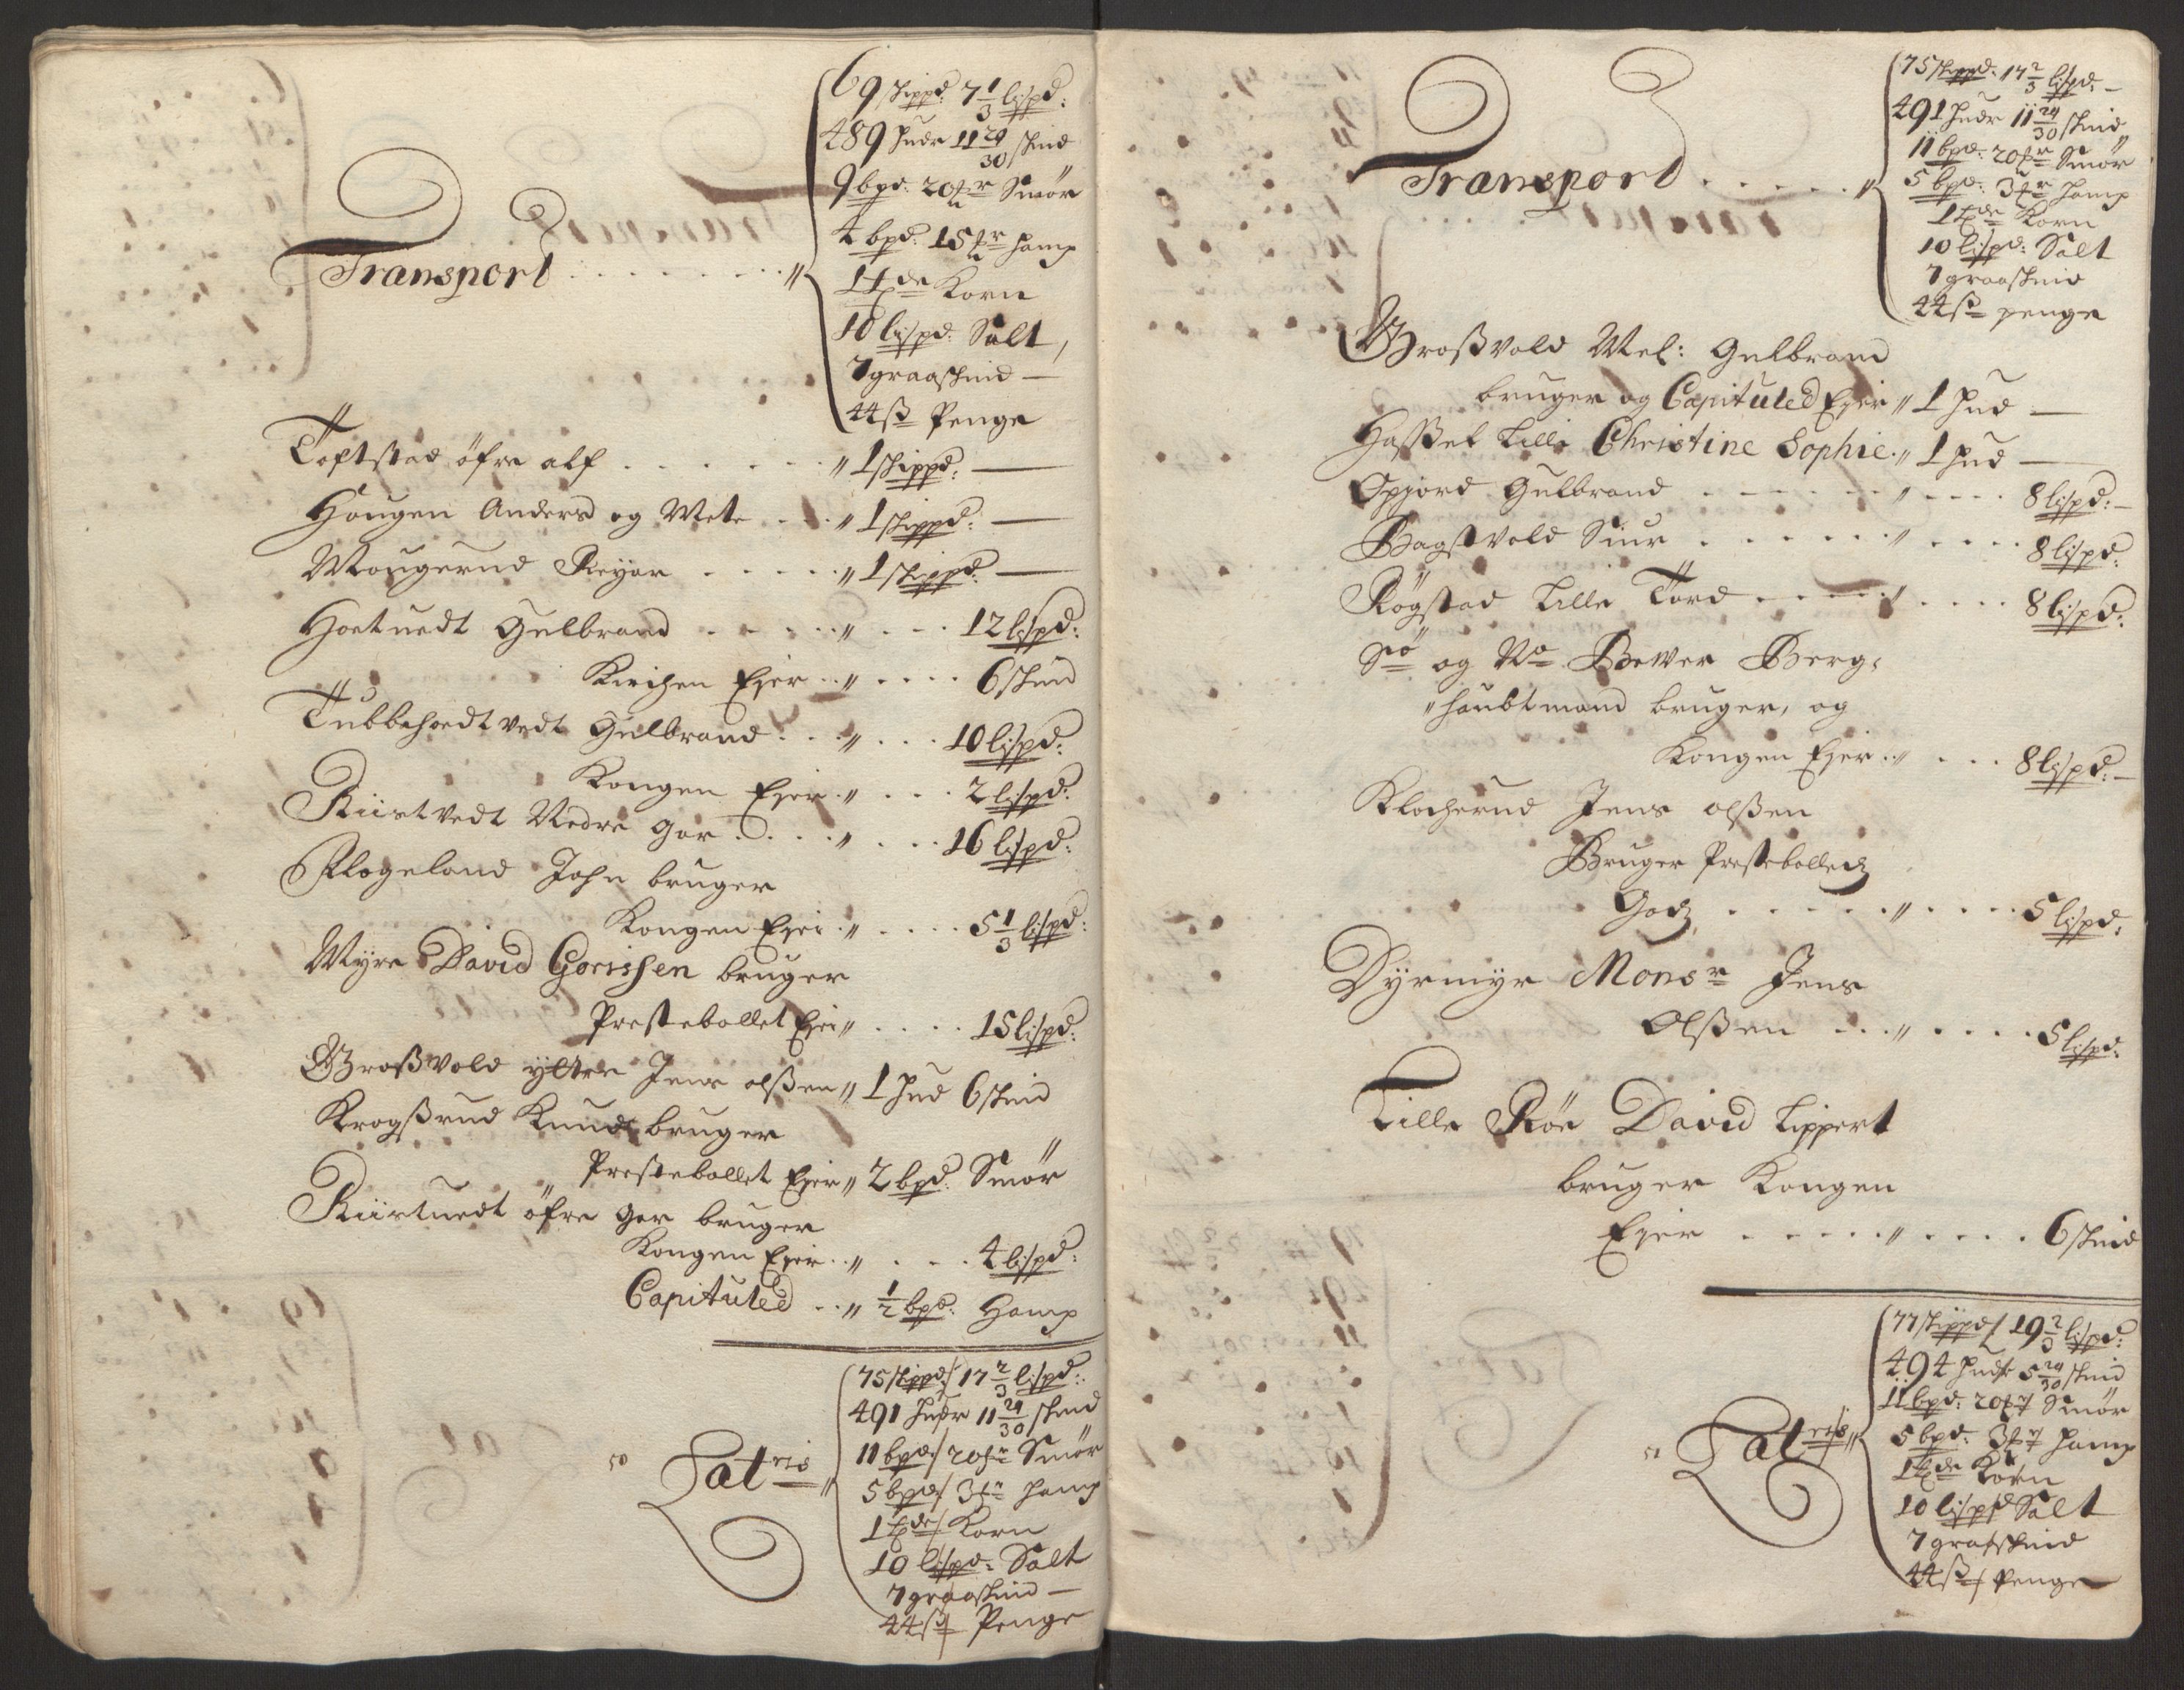 69 skippd: 7 1/3 lispd:
489 Huder 11 24/30 skind
9 bpd: 20 ℔r Smör
4 bpd: 15 ℔r Hamp
Transport . . . . . . . "
1 tde Korn
10 lispd: Salt,
7 graaskind —
44 ß Penge
Toftstad öfre alf . . . . . . " 1 skippd: —
Hougen Anders og Mete . . " 1 skippd: —
Mougerud Reyer . . . . . " 1 skippd: —
Hoetuedt Gulbrand . . . . . " . . . 12 lispd:
Kirchen Ejer . . " . . . . 6 skind
Tubbehoedt vedt Gulbrand . . . " . . . 10 lispd:
Kongen Ejer . " . . . 2 lispd:
Riistvedt Nedre Gor . . . . " . . . 16 lispd:
Flogeland John bruger
Kongen Ejer . " . . . . 5 1/3 lispd:
Myre David Gorissen bruger
Prestebollet Ejer " . . . . 15 lispd:
Großvold yttre Jens olßen " 1 Hud 6 skind
Krogßrud Knud bruger
Prestebollet Ejer " 2 bpd: Smör
Riistuedt öfre Gor bruger
Kongen Ejer . . " . . . 4 lispd:
Capituled . . " 1/2 bpd: Hamp
75 skippd/ 17 2/3 lispd:
491 Huder 11 24/30 skind
11 bpd/ 20 ℔r Smör
Lat ris "
5 bpd/ 3 ℔r Hamp
1 tde/ Korn
10 lispd: Salt
7 graaskind —
44 ß Penge
75 skippd: 17 2/3 lispd: —
491 Huder 11 24/30 skind
11 bpd: 20 ℔r Smör
Transport . . . . . "
5 bpd: 3 ℔r Hamp
1 tde Korn
10 lispd: Salt
7 graaskind
44 ß penge
Großvold Mel: Gulbrand
bruger og Capituled Ejer " 1 Hud —
Haßel Lille Christine Sophie . " 1 Hud —
Opjord Gulbrand . . . . . " . . . . 8 lispd: —
Bagstvold Siur . . . . . . " . . . . 8 lispd:
Rögstad Lille Tord . . . . . " . . . . 8 lispd:
Sö og No Bewer Berg:
"Haubtmand bruger, og
Kongen Ejer . " . . . 8 lispd: —
Klocherud Jens olßen
Bruger Prestebolletz
Godz . . . . . . " . . . . 5 lispd:
Dyrmyr Monsr Jens
Olßen . . . " . . . . 5 lispd:
Lille Röe David Lippert
bruger Kongen
Ejer . . . . . " . . . . 6 skind
77 skippd/ 19 2/3 lispd:
494 Huder 5 24/30 skind
11 bpd: 20 ℔r Smör
Lat ris "
5 bpd: 3 ℔r Hamp
1 tde Korn
10 lispd Salt
7 graaskind
44 ß/ Penge